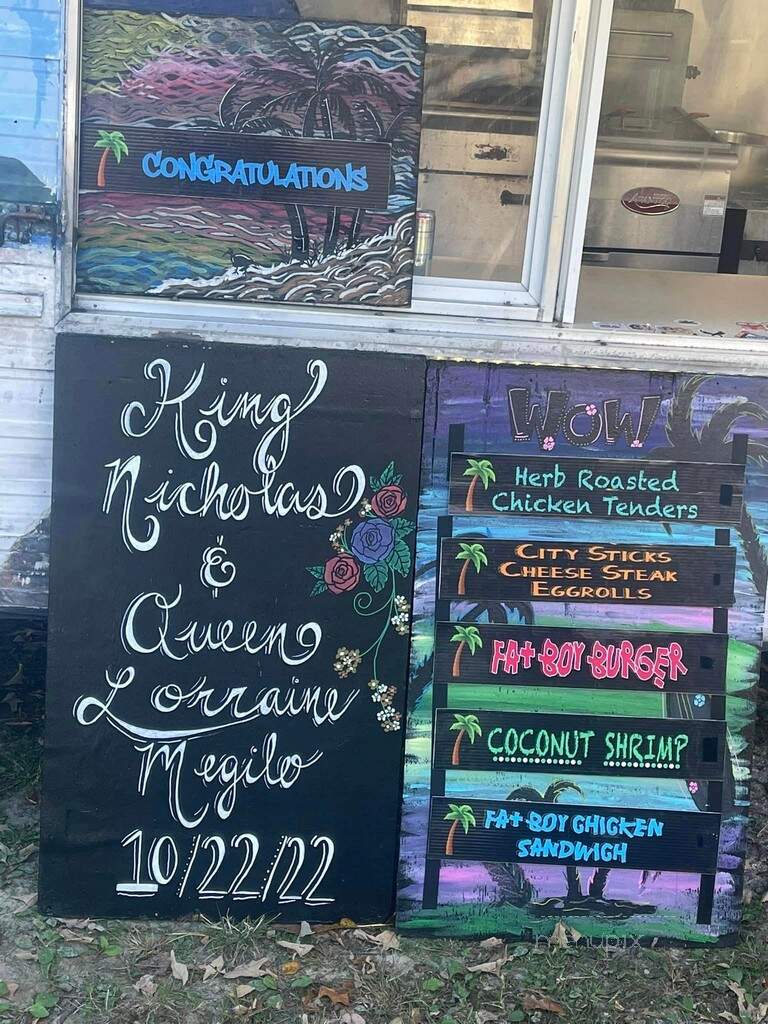 CONGRATULATIONS
King
Nicholas
&
Queen
Lorraine
Megilo
10/22/22
WOW
Herb Roasted
Chicken Tenders
CITY STICKS
CHEESE STEAK
EGGROLLS
FAt BOY BURGER
COCONUT SHRIMP
FAt BOY CHICKEN
SANDWICH
menupix